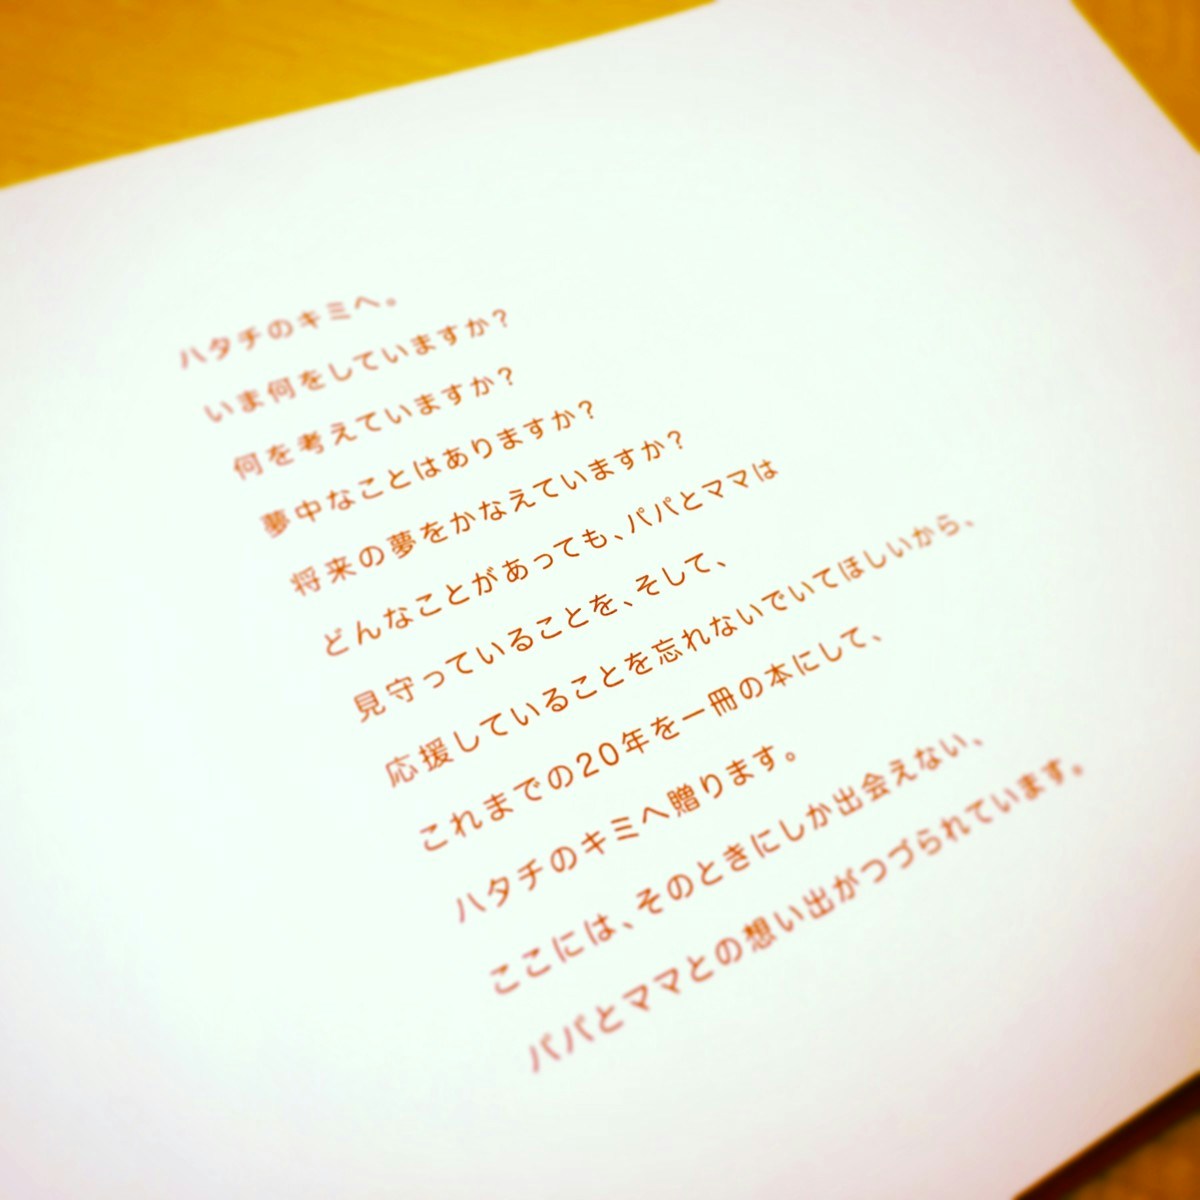 ハタチのキミへ。
いま何をしていますか？
何を考えていますか？
夢中なことはありますか？
将来の夢をかなえていますか？
どんなことがあっても、パパとママは
見守っていることを、そして、
応援していることを忘れないでいてほしいから、
これまでの20年を一冊の本にして、
ハタチのキミへ贈ります。
ここには、そのときにしか出会えない、
パパとママとの想い出がつづられています。